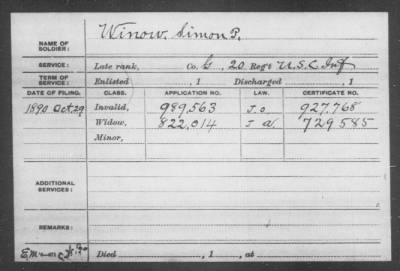 NAME OF SOLDIER: Winow, Simon P.
SERVICE: Late rank, Co. G, 20 Reg't U.S.C. Inf
TERM OF SERVICE: Enlisted , 1 Discharged , 1
DATE OF FILING. CLASS. APPLICATION NO. LAW. CERTIFICATE NO.
1890 Oct 29 Invalid, 989,563 J.O. 927,768
Widow, 822,014 729,585
Minor,
ADDITIONAL SERVICES:
REMARKS:
Died , 1 , at